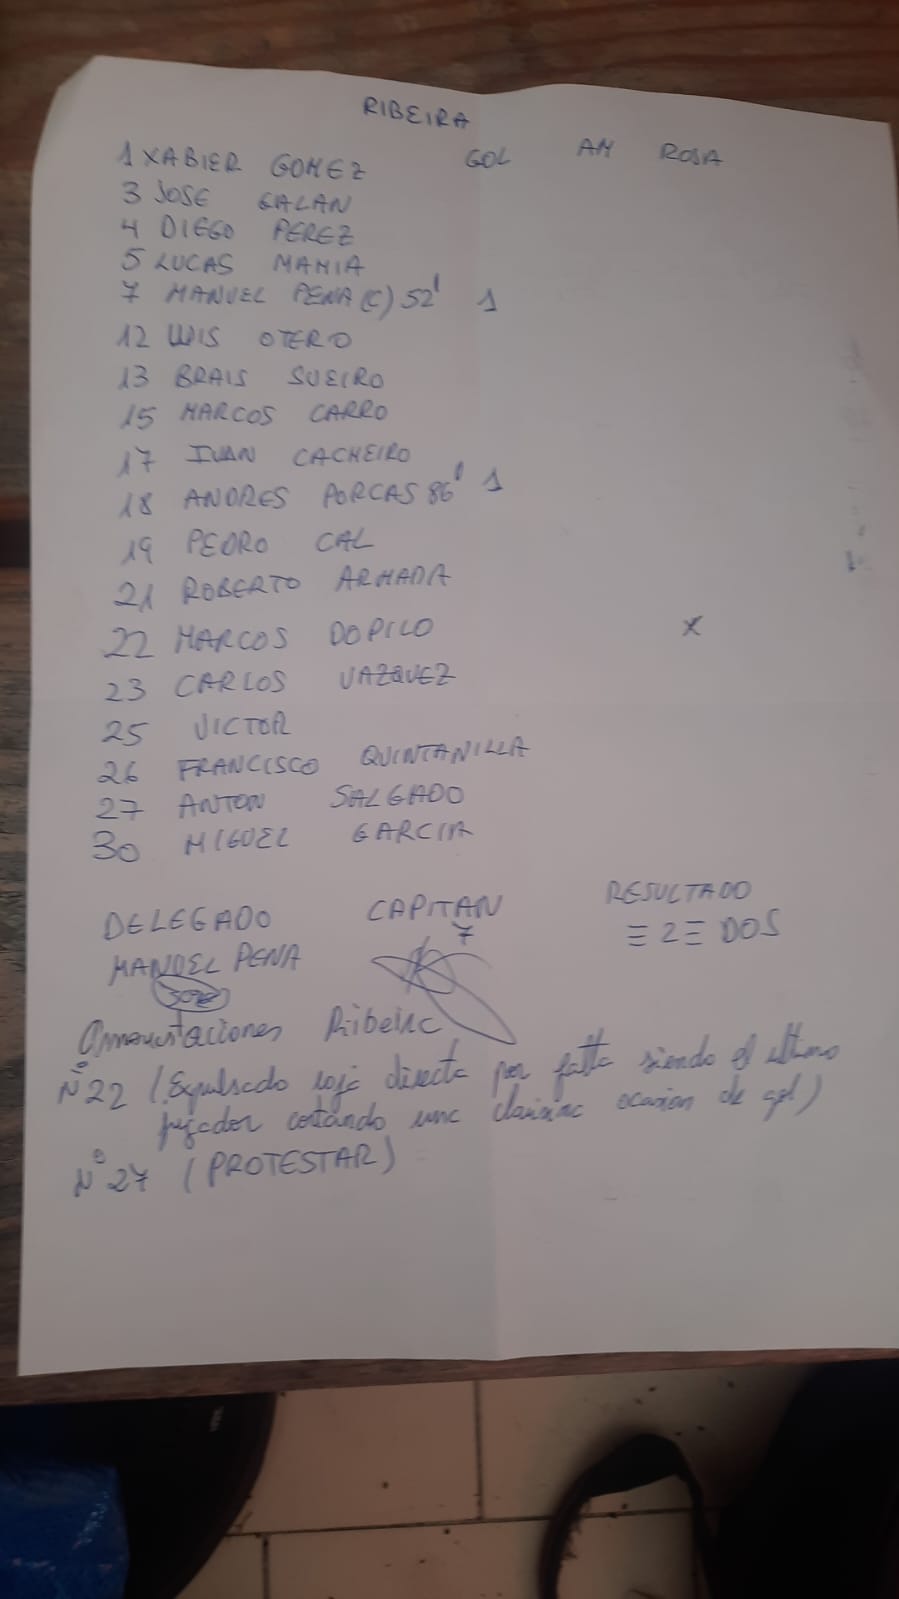 RIBEIRA
GOL AM ROJA
1 XABIER GOMEZ
3 JOSE GALAN
4 DIEGO PEREZ
5 LUCAS MAHIA
7 MANUEL PENA (C) 52' 1
12 LUIS OTERO
13 BRAIS SUEIRO
15 MARCOS CARRO
17 IVAN CACHEIRO
18 ANDRES PORCAS 86' 1
19 PEDRO CAL
21 ROBERTO ARMADA
22 MARCOS DOPICO X
23 CARLOS VAZQUEZ
25 VICTOR
26 FRANCISCO QUINTANILLA
27 ANTON SALGADO
30 MIGUEL GARCIA
DELEGADO CAPITAN RESULTADO
MANUEL PENA 7 ≡ 2 ≡ DOS
Ribeira
Nº 22 (Expulsado roja directa por falta siendo el ultimo
jugador cortando una ocasion de gol)
Nº 27 (PROTESTAR)